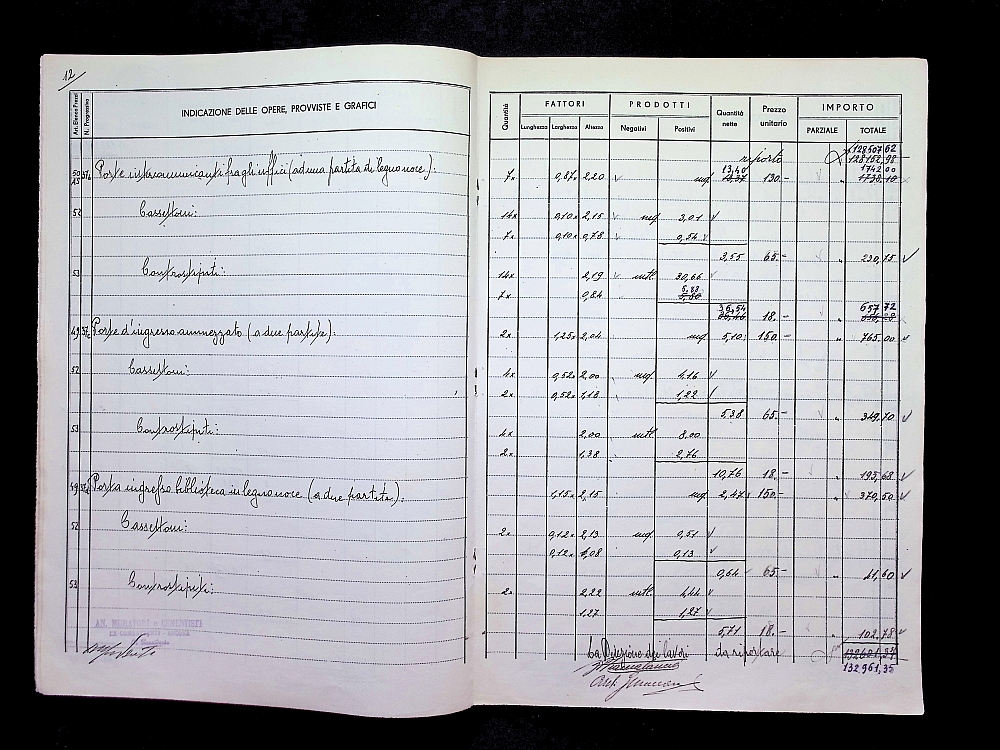 12
Art. Elenco Prezzi N. Progressivo INDICAZIONE DELLE OPERE, PROVVISTE E GRAFICI
Quantità FATTORI PRODOTTI Quantità nette Prezzo unitario IMPORTO
Lunghezza Larghezza Altezza Negativi Positivi PARZIALE TOTALE
128507,62
riporto 128152,98
13,40 1742,00
50 Porte intercomunicanti fra gli uffici (ad una partita di legno noce): 7x 0,87x 2,20 mq. 130.- 1738.10
52 Cassettoni: 14x 0,10x 2,15 mq. 3,01
7x 0,10x 0,78 0,54
3,55 65.- " 230,75
53 Controstipiti: 14x 2,19 mtl. 30,66
5,88
7x 0,84
36,54 657,72
18.- "
49 Porte d'ingresso ammezzato (a due partite): 2x 1,25x 2,04 mq. 5,10 150.- " 765.00
52 Cassettoni: 4x 0,52x 2,00 mq. 4,16
2x 0,52x 1,18 1,22
5,38 65.- " 349,70
53 Controstipiti: 4x 2,00 mtl. 8,00
2x 1,38 2,76
10,76 18.- " 193,68
49 Porta ingresso biblioteca in legno noce (a due partite): 1,15x 2,15 mq. 2,47 150.- " 370,50
52 Cassettoni: 2x 0,12x 2,13 mq. 0,51
0,12x 1,08 0,13
0,64 65.- " 41,60
53 Controstipiti: 2x 2,22 mtl. 4,44
1,27 1,27
5,71 18.- " 102,78
La Direzione dei lavori da riportare
132961,35